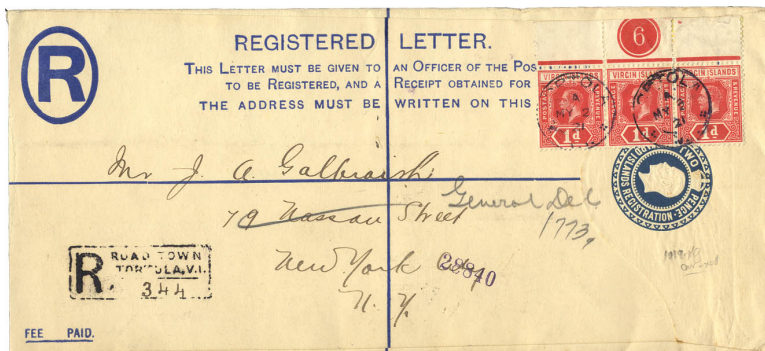 REGISTERED LETTER.
THIS LETTER MUST BE GIVEN TO AN OFFICER OF THE POS
TO BE REGISTERED, AND A RECEIPT OBTAINED FOR
THE ADDRESS MUST BE WRITTEN ON THIS
R
6
VIRGIN ISLANDS VIRGIN ISLANDS VIRGIN ISLANDS
POSTAGE & REVENUE
1d 1d 1d
TWO PENCE
ISLANDS REGISTRATION
Mr J. A. Galbraith
79 Nassau Street
General Del
1773
New York City
28840
N. Y.
R
ROAD TOWN
TORTOLA, V.I.
344
FEE PAID.